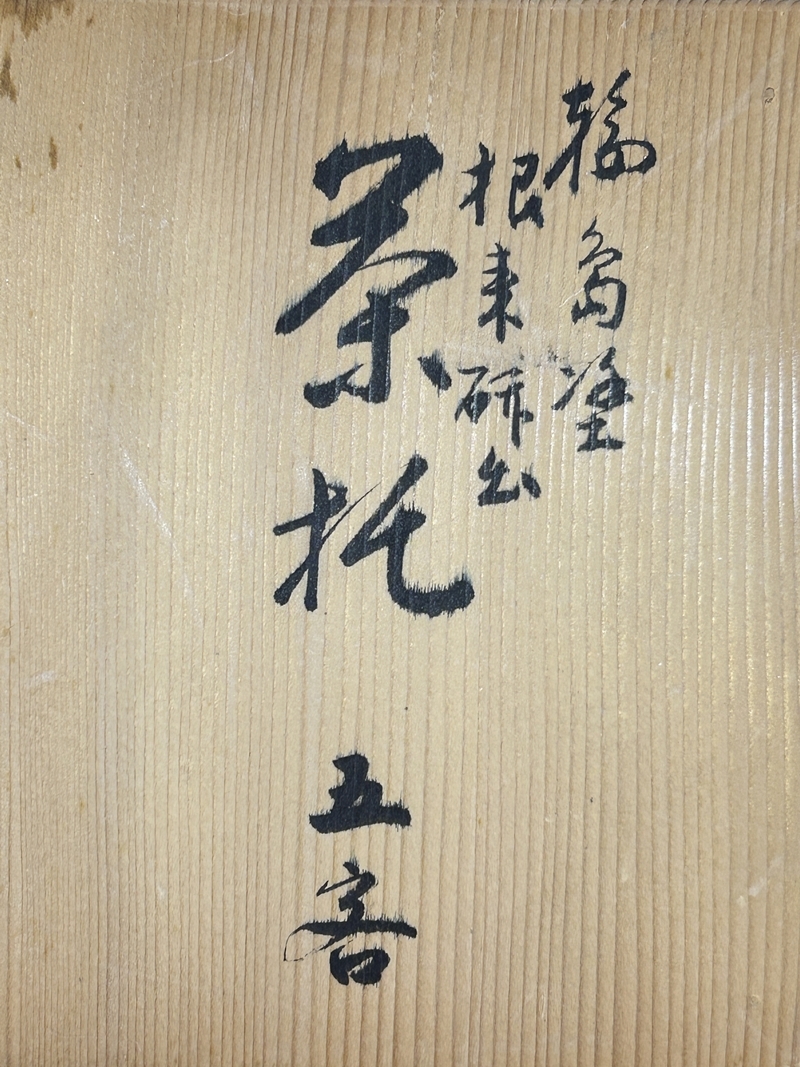 輪島塗
根来研出
茶托 五客